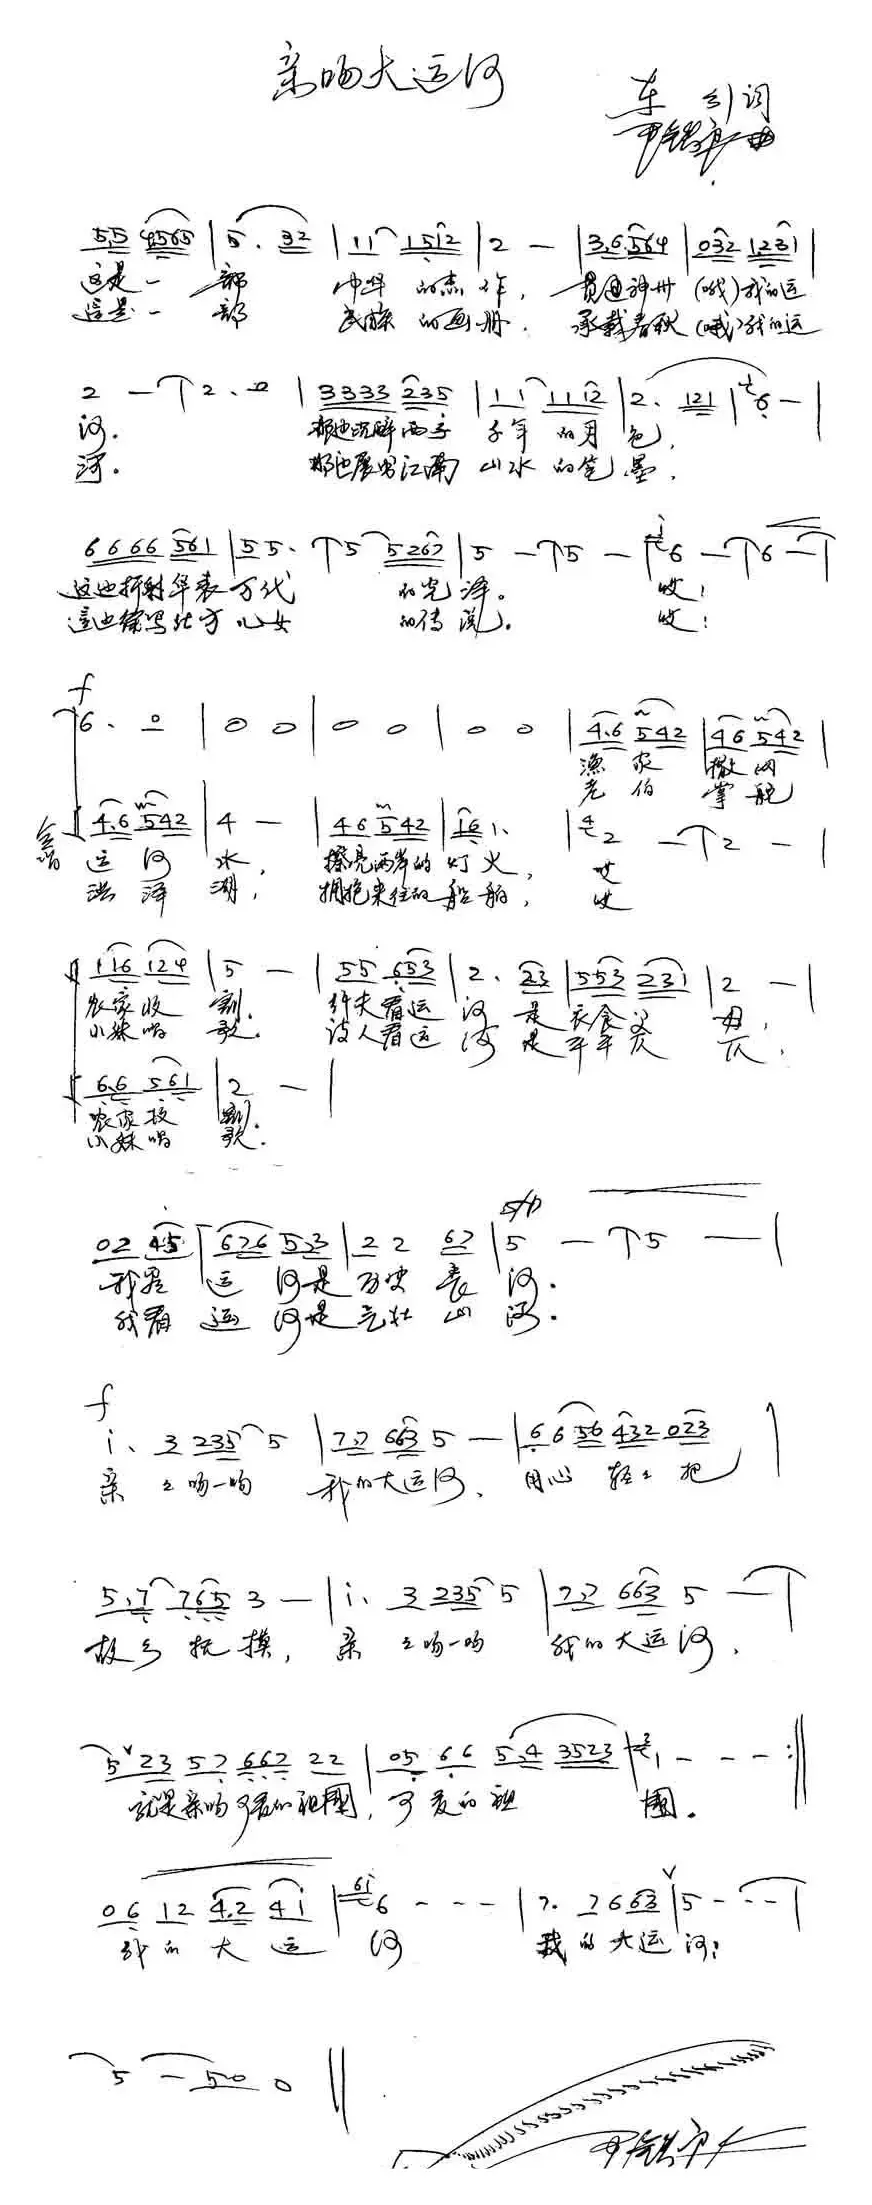 亲吻大运河
车 引 词
尹铁良 曲
5.5 4565 | 5. 32 | 11 1512 | 2 - | 3.6 564 | 032 1231 |
这是一 部 中华 的杰作, 贯通神州 (哦)我的运
这是一 部 民族 的画册. 承载春秋 (哦)我的运
2 - | 2. 0 | 3333 235 | 11 1112 | 2. 121 | 6 - |
河. 那边沉醉西子 千年 的月 色,
河. 那边展男江南 山水 的笔 墨,
6666 561 | 55. | 5 5267 | 5 - | 5 - | 6 - | 6 - |
这边折射华表万代 的光 泽. 哎!
这边续写北方儿女 的传 说. 哎!
f
6. 0 | 0 0 | 0 0 | 0 0 | 4.6 542 | 46 542 |
渔 家 撒 网
老 伯 掌 舵
合唱 4.6 542 | 4 - | 46 542 | 16 1. | 2 - | 2 - |
运 河 水, 擦亮两岸的 灯 火, 哎
洪 泽 湖, 拥抱来往的 船 舶, 哎
116 124 | 5 - | 55 653 | 2. 23 | 553 231 | 2 - |
农家收 割. 纤夫看运 河 是 衣食父 母,
小妹唱 歌. 诗人看运 河 是 平平仄 仄,
6.6 561 | 2 - |
农家收 割.
小妹唱 歌.
sfp
02 45 | 626 5.3 | 22 67 | 5 - | 5 - |
我看 运 河是 历史 长 河.
我看 运 河是 气壮 山 河.
f
i. 3 235 5 | 7.7 663 5 - | 6 656 432 023 |
亲 亲吻一吻 我的大运河, 用心 轻轻 把
5.7 765 3 - | i. 3 235 5 | 7.7 663 5 - |
故乡 抚 摸, 亲 亲吻一吻 我的大运河,
5 23 57 667 22 | 05 66 5.4 3523 | 1 - - - :||
就是亲吻可爱的祖国, 可 爱的 祖 国.
06 12 4.2 4i | 6 - - - | 7. 7 663 | 5 - - - |
我的 大 运 河 我 的大运 河!
5 - 50 0 ||
尹铁良